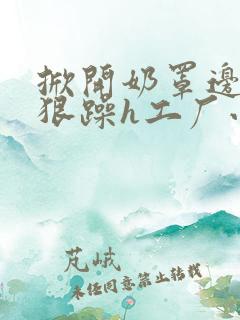 掀開奶罩邊
狠躁h工厂、
芃峨
未经同意禁止转载